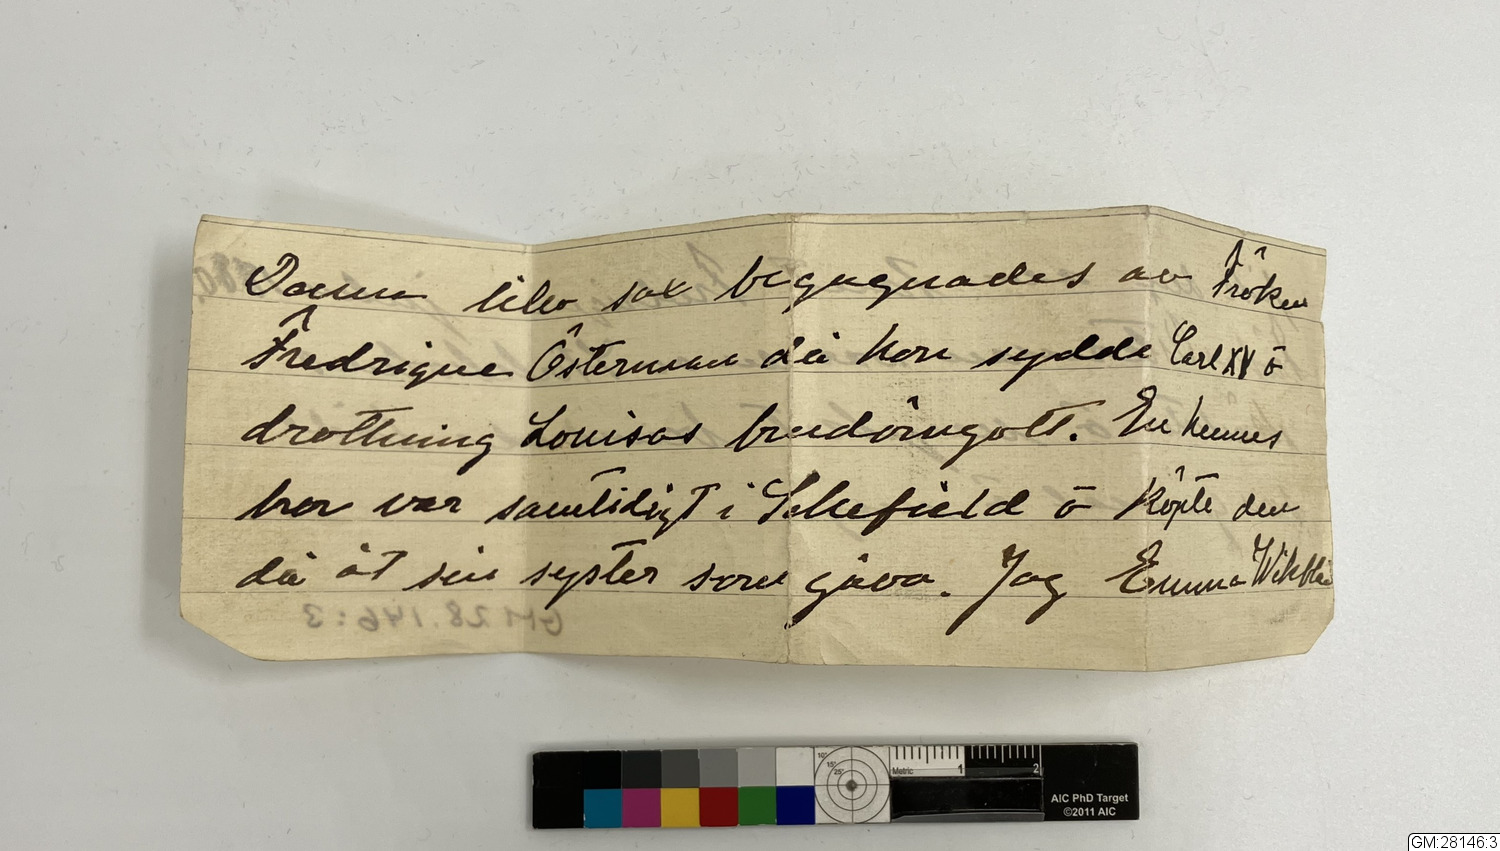 Denna lilla sax begagnades av Fröken
Fredrique Österman då hon sydde Carl XV o
drottning Louisas brudörngott. En hennes
bror var samtidigt i Schefield o köpte den
då åt sin syster som gåva. Jag Emma Wikbla
GM 28.146:3
10°
15°
25°
Metric 1 2
AIC PhD Target
©2011 AIC
GM:28146:3